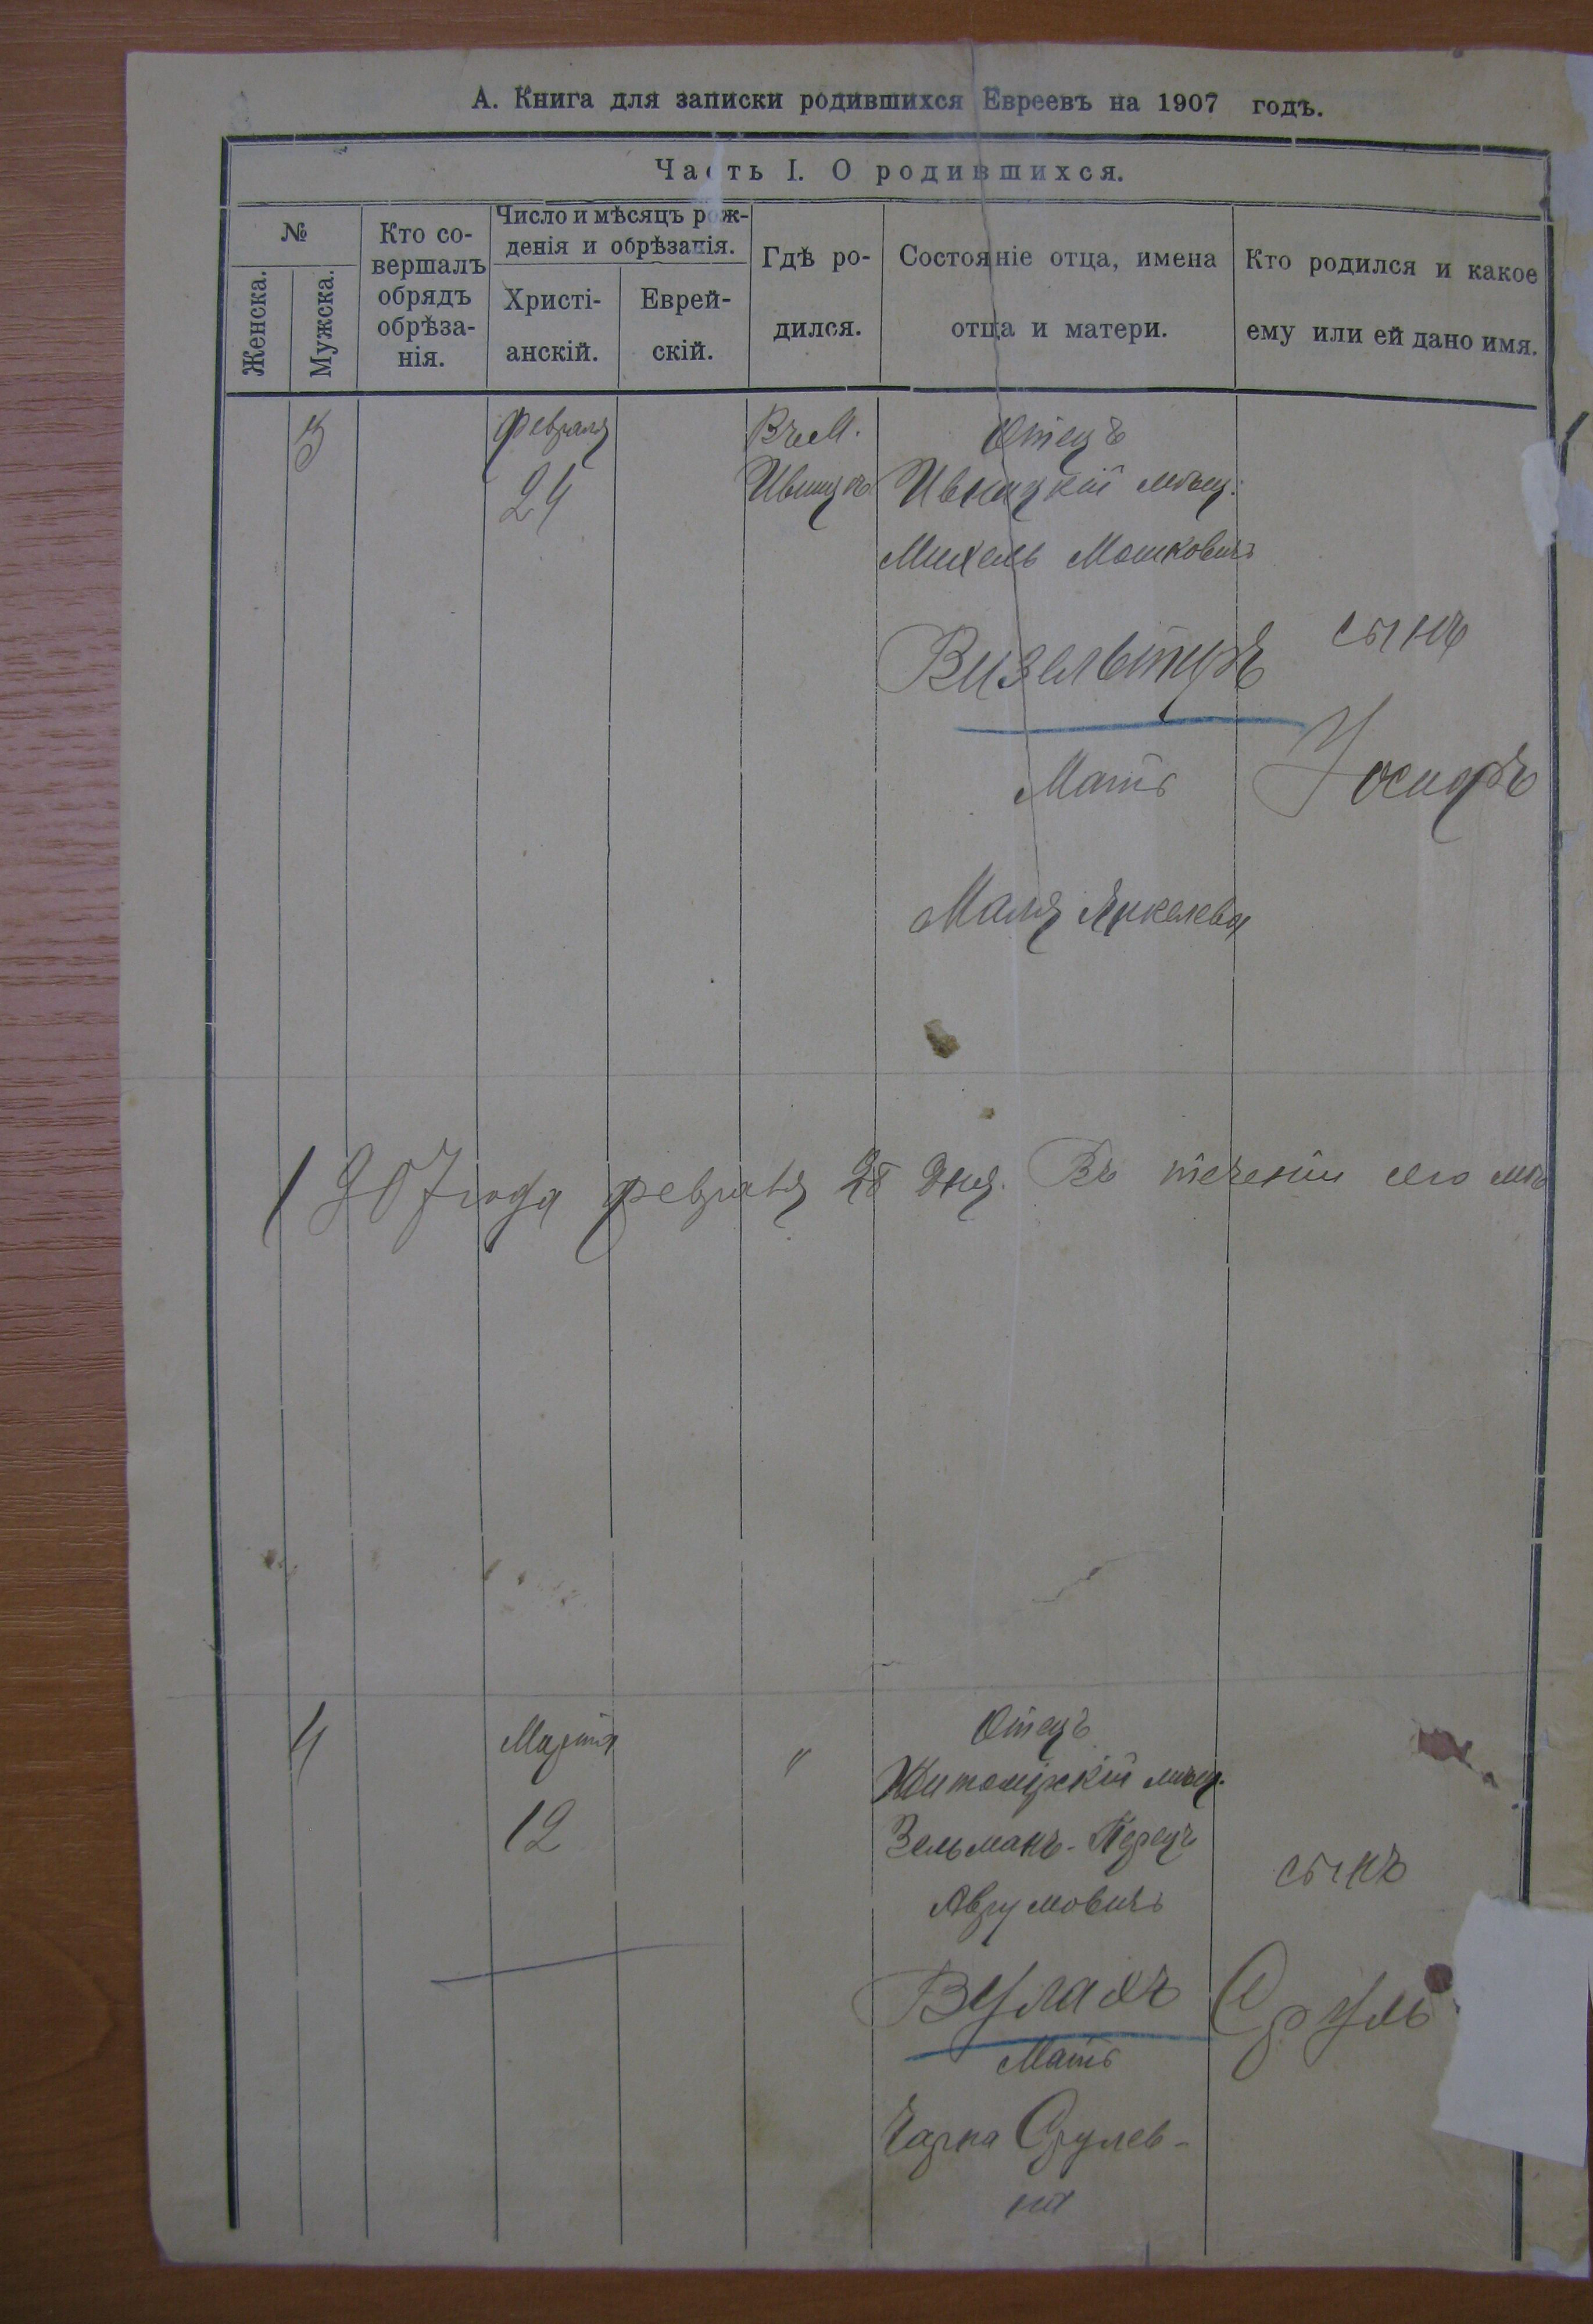 А. Книга для записки родившихся Евреевъ на 1907 годъ.
Часть I. О родившихся.
№
Женска.
Мужска.
Кто со-
вершалъ
обрядъ
обрѣза-
нія.
Число и мѣсяцъ рож-
денія и обрѣзанія.
Христі-
анскій.
Еврей-
скій.
Гдѣ ро-
дился.
Состояніе отца, имена
отца и матери.
Кто родился и какое
ему или ей дано имя.
3
Февраля
24
Въ М.
Ивницѣ
Отецъ
Ивницкій мѣщ.
Михель Мошковичъ
Визельтиръ
Мать
Маля Янкелева
сынъ
Іосифъ
1907 года февраля 28 дня. Въ теченіи сего мѣ
4
Марта
12
"
Отецъ
Житомірскій мѣщ.
Зельманъ-Перецъ
Аврумовичъ
Вулахъ
Мать
Чарна Срулев-
на
сынъ
Сруль